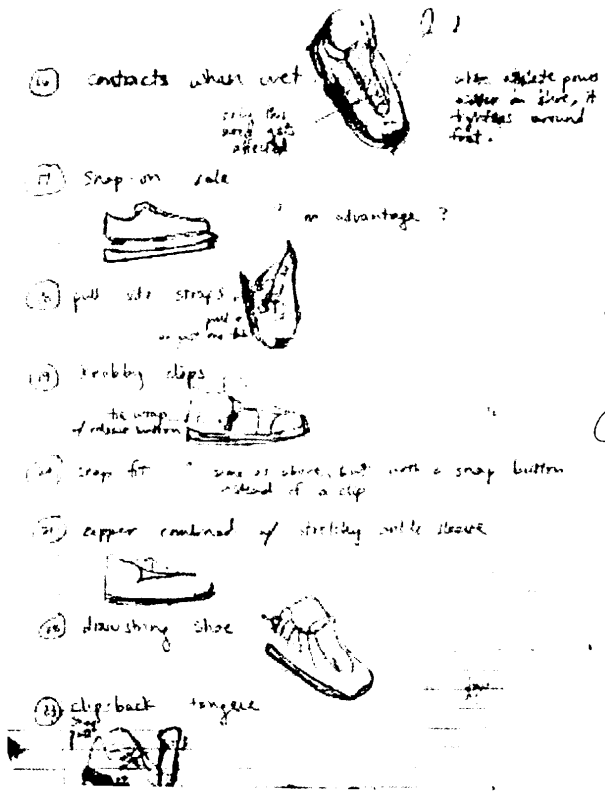 16 contracts when wet
only this
area gets
affected
when athlete pours
water on shoe, it
tightens around
foot.
17 Snap-on sole
an advantage ?
pull side straps
pull
19 krabby clips
tie wrap
w/ release button
20 snap fit
same as above, but with a snap button
instead of a clip
21 zipper combined w/ stretchy ankle sleeve
drawstring shoe
23 clip-back tongue